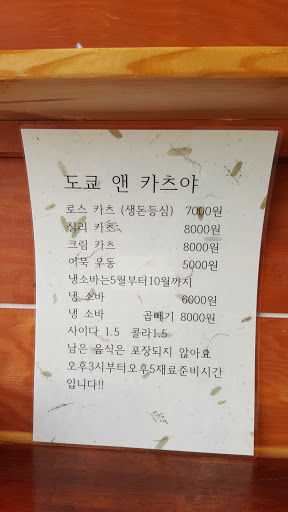 도쿄 앤 카츠야
로스 카츠 (생돈등심) 7000원
칠리 카츠 8000원
크림 카츠 8000원
어묵 우동 5000원
냉소바는5월부터10월까지
냉 소바 6000원
냉 소바 곱빼기 8000원
사이다 1.5 콜라1.5
남은 음식은 포장되지 않아요
오후3시부터오후5재료준비시간
입니다!!